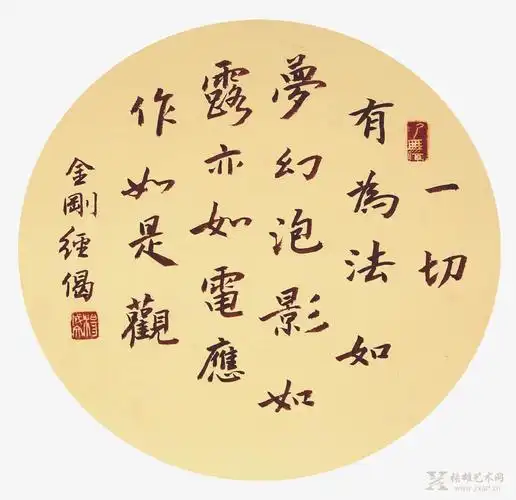 一切
有為法如
夢幻泡影如
露亦如電應
作如是觀
金剛經偈
张雄艺术网
www.zxart.cn